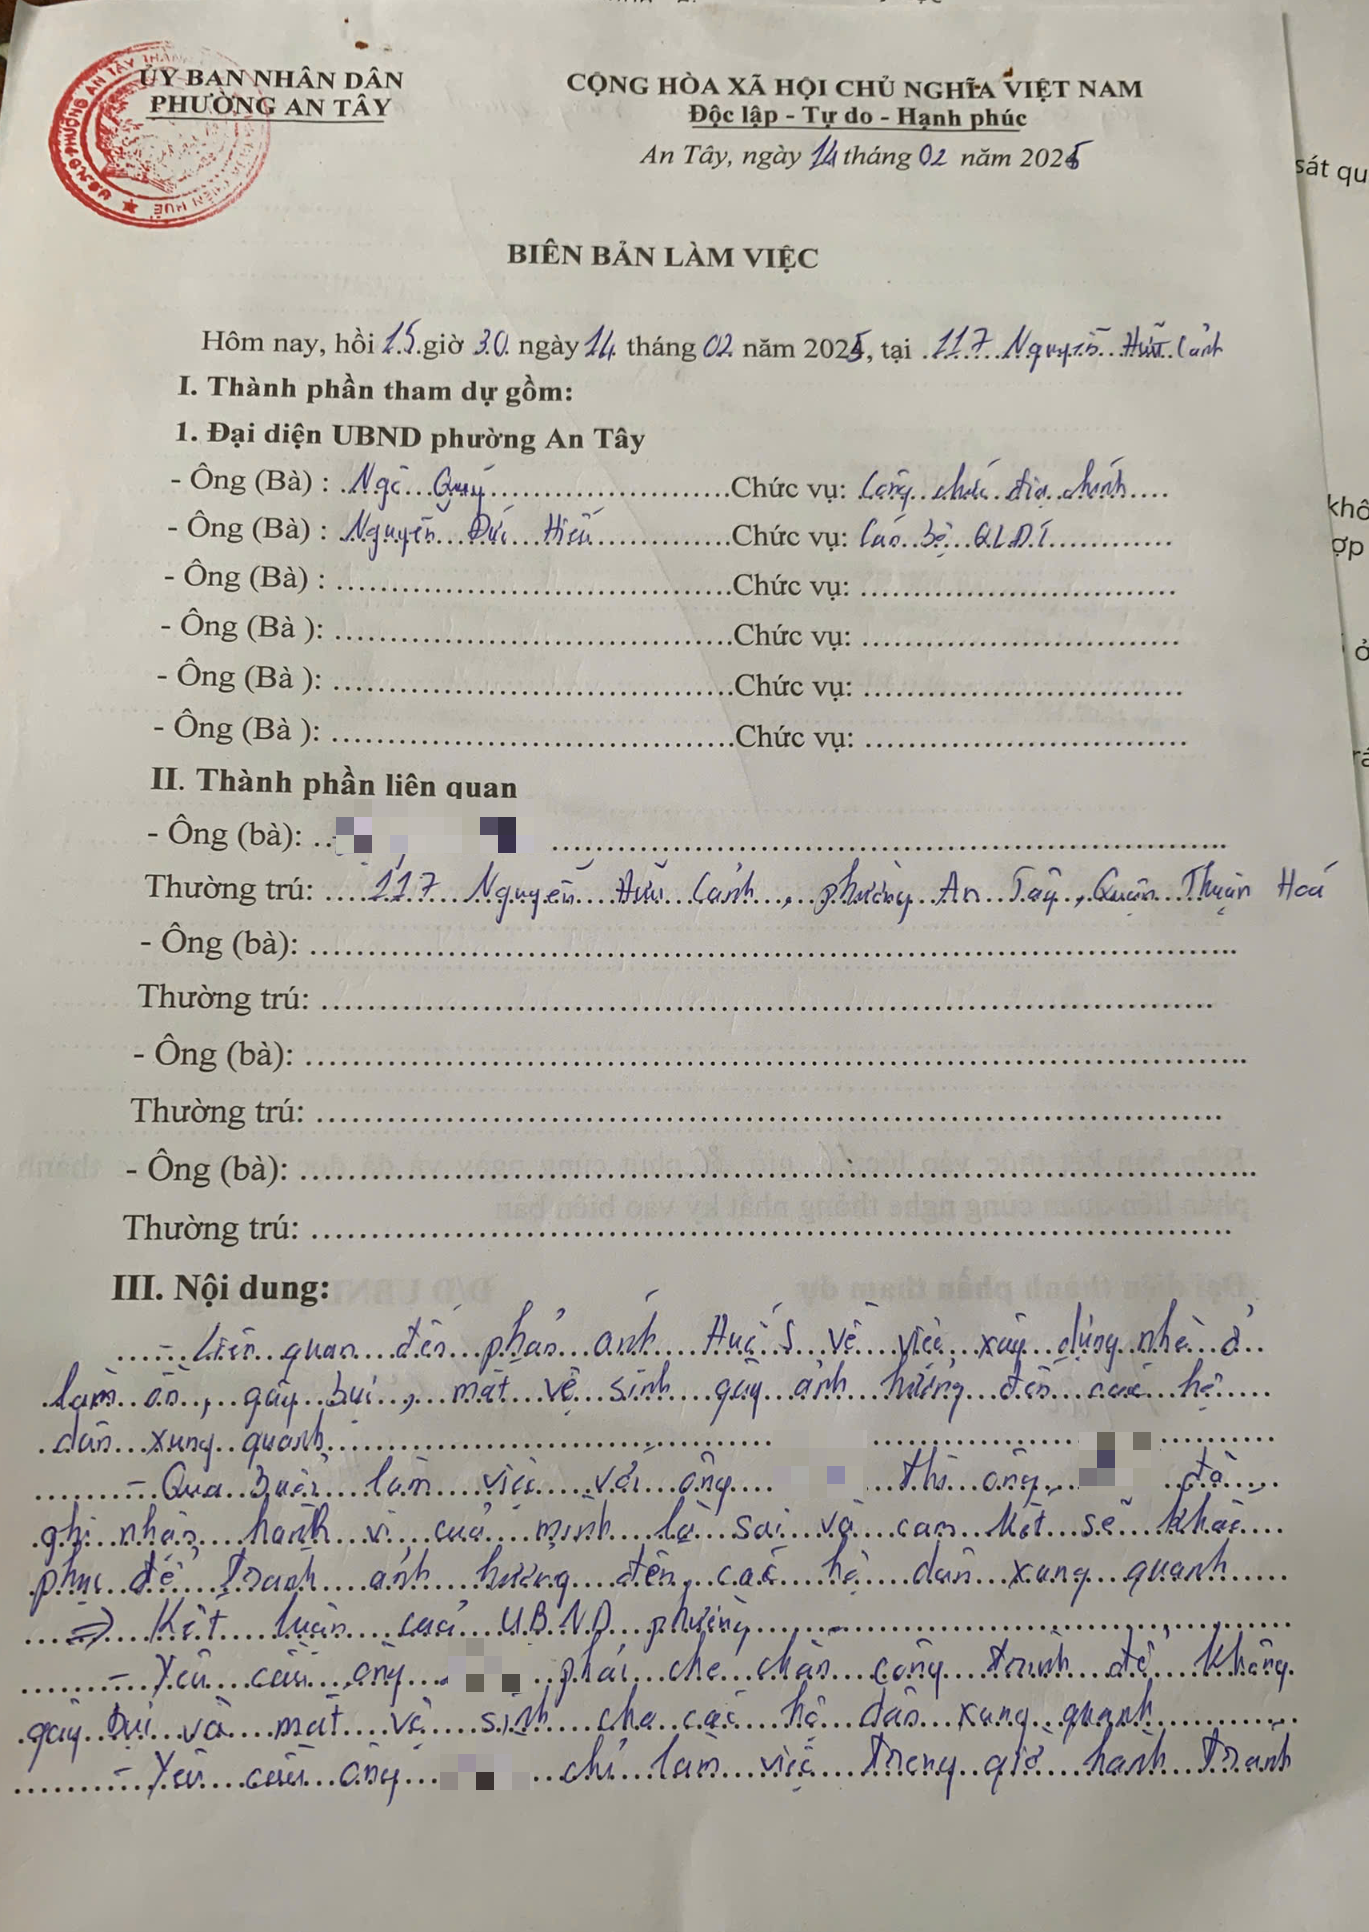 ỦY BAN NHÂN DÂN
PHƯỜNG AN TÂY
CỘNG HÒA XÃ HỘI CHỦ NGHĨA VIỆT NAM
Độc lập - Tự do - Hạnh phúc
An Tây, ngày 14 tháng 02 năm 2025
BIÊN BẢN LÀM VIỆC
Hôm nay, hồi 15 giờ 30 ngày 14 tháng 02 năm 2025, tại 117 Nguyễn Hữu Cảnh
I. Thành phần tham dự gồm:
1. Đại diện UBND phường An Tây
- Ông (Bà) : Ngô Quý Chức vụ: Công chức địa chính
- Ông (Bà) : Nguyễn Đức Hiếu Chức vụ: Cán bộ QLĐT
- Ông (Bà) : Chức vụ:
- Ông (Bà ): Chức vụ:
- Ông (Bà ): Chức vụ:
- Ông (Bà ): Chức vụ:
II. Thành phần liên quan
- Ông (bà):
Thường trú: 117 Nguyễn Hữu Cảnh, phường An Tây, Quận Thuận Hoá
- Ông (bà):
Thường trú:
- Ông (bà):
Thường trú:
- Ông (bà):
Thường trú:
III. Nội dung:
- Liên quan đến phản ánh Huế S về việc xây dựng nhà ở
làm ồn, gây bụi, mất vệ sinh gây ảnh hưởng đến các hộ
dân xung quanh
- Qua buổi làm việc với ông thì ông đã
ghi nhận hành vi của mình là sai và cam kết sẽ khắc
phục để tránh ảnh hưởng đến các hộ dân xung quanh
=> Kết luận của UBND phường
- Yêu cầu ông phải che chắn công trình để không
gây bụi và mất vệ sinh cho các hộ dân xung quanh
- Yêu cầu ông chỉ làm việc trong giờ hành tránh
sát qu
khô
ợp
ở